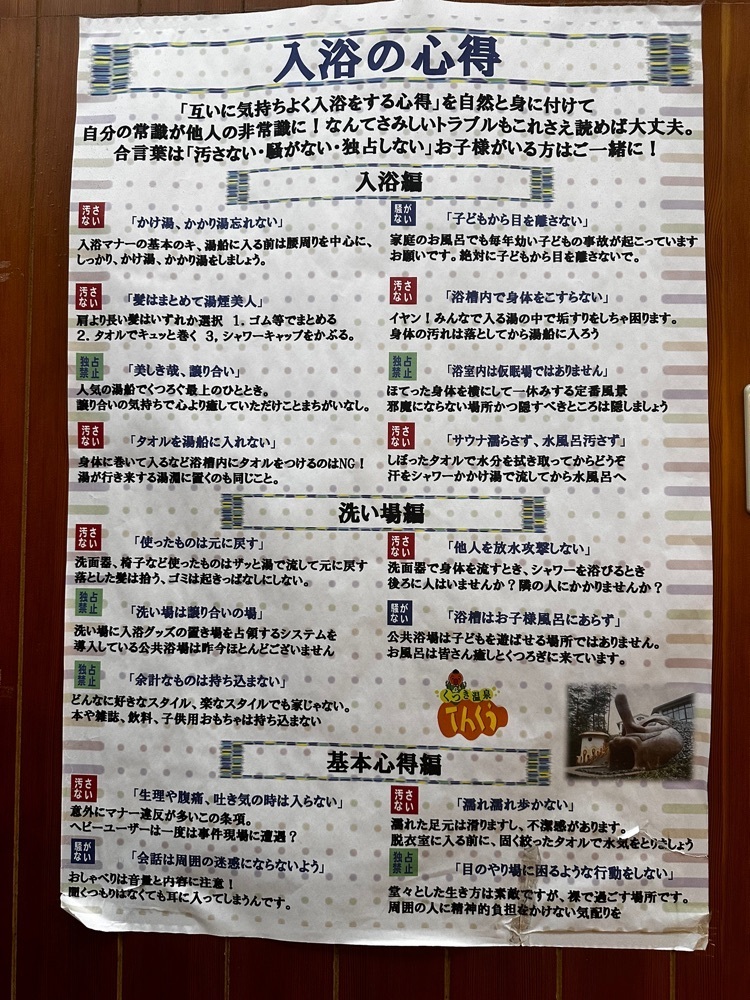 入浴の心得
「互いに気持ちよく入浴をする心得」を自然と身に付けて
自分の常識が他人の非常識に！なんてさみしいトラブルもこれさえ読めば大丈夫。
合言葉は「汚さない・騒がない・独占しない」お子様がいる方はご一緒に！
入浴編
汚さない
「かけ湯、かかり湯忘れない」
入浴マナーの基本のキ、湯船に入る前は腰周りを中心に、
しっかり、かけ湯、かかり湯をしましょう。
汚さない
「髪はまとめて湯煙美人」
肩より長い髪はいずれか選択 1. ゴム等でまとめる
2. タオルでキュッと巻く 3, シャワーキャップをかぶる。
独占禁止
「美しき哉、譲り合い」
人気の湯船でくつろぐ最上のひととき。
譲り合いの気持ちで心より癒していただけことまちがいなし。
汚さない
「タオルを湯船に入れない」
身体に巻いて入るなど浴槽内にタオルをつけるのはNG！
湯が行き来する湯溜に置くのも同じこと。
騒がない
「子どもから目を離さない」
家庭のお風呂でも毎年幼い子どもの事故が起こっています
お願いです。絶対に子どもから目を離さないで。
汚さない
「浴槽内で身体をこすらない」
イヤン！みんなで入る湯の中で垢すりをしちゃ困ります。
身体の汚れは落としてから湯船に入ろう
独占禁止
「浴室内は仮眠場ではありません」
ほてった身体を横にして一休みする定番風景
邪魔にならない場所かつ隠すべきところは隠しましょう
汚さない
「サウナ濡らさず、水風呂汚さず」
しぼったタオルで水分を拭き取ってからどうぞ
汗をシャワーかかけ湯で流してから水風呂へ
洗い場編
汚さない
「使ったものは元に戻す」
洗面器、椅子など使ったものはザッと湯で流して元に戻す
落とした髪は拾う、ゴミは起きっぱなしにしない。
独占禁止
「洗い場は譲り合いの場」
洗い場に入浴グッズの置き場を占領するシステムを
導入している公共浴場は昨今ほとんどございません
独占禁止
「余計なものは持ち込まない」
どんなに好きなスタイル、楽なスタイルでも家じゃない。
本や雑誌、飲料、子供用おもちゃは持ち込まない
汚さない
「他人を放水攻撃しない」
洗面器で身体を流すとき、シャワーを浴びるとき
後ろに人はいませんか？隣の人にかかりませんか？
騒がない
「浴槽はお子様風呂にあらず」
公共浴場は子どもを遊ばせる場所ではありません。
お風呂は皆さん癒しとくつろぎに来ています。
くつき温泉
てんくう
基本心得編
汚さない
「生理や腹痛、吐き気の時は入らない」
意外にマナー違反が多いこの条項。
ヘビーユーザーは一度は事件現場に遭遇？
騒がない
「会話は周囲の迷惑にならないよう」
おしゃべりは音量と内容に注意！
聞くつもりはなくても耳に入ってしまうんです。
汚さない
「濡れ濡れ歩かない」
濡れた足元は滑りますし、不潔感があります。
脱衣室に入る前に、固く絞ったタオルで水気をとりましょう
独占禁止
「目のやり場に困るような行動をしない」
堂々とした生き方は素敵ですが、裸で過ごす場所です。
周囲の人に精神的負担をかけない気配りを